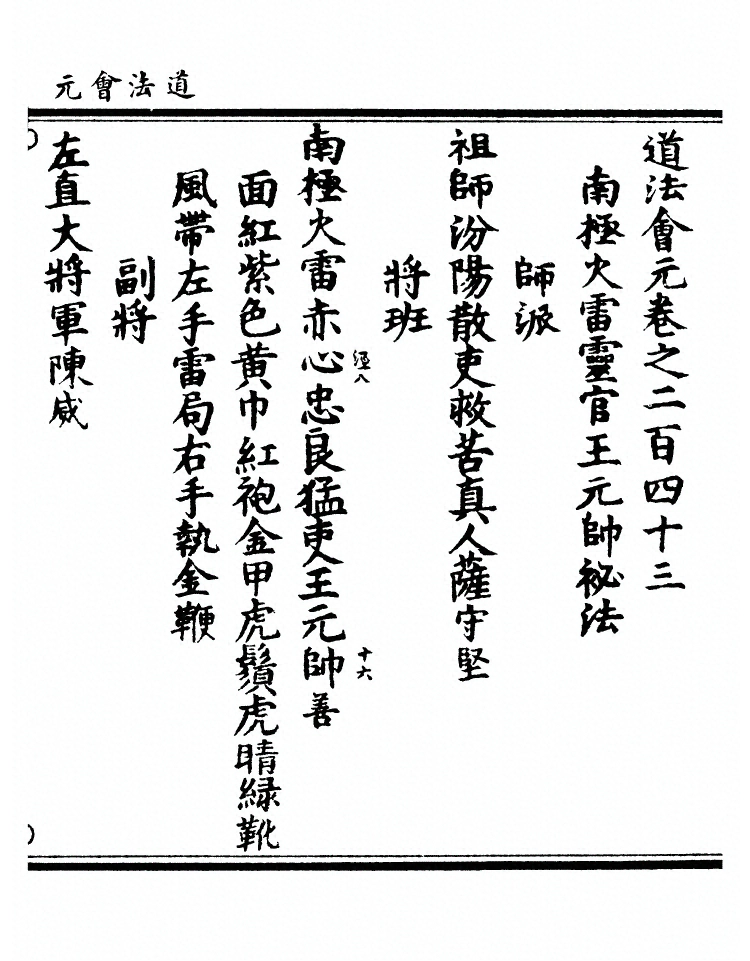 道法會元
道法會元卷之二百四十三
南極火雷靈官王元帥祕法
師派
祖師汾陽散吏救苦真人薩守堅
將班
南極火雷赤心忠良猛吏王元帥善
十六
面紅紫色黄巾紅袍金甲虎鬚虎睛緑靴
風帶左手雷局右手執金鞭
副將
左直大將軍陳威